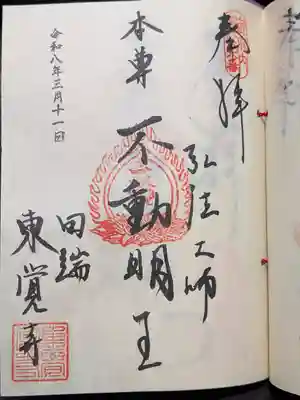 奉拝
弘法大師
本尊 不動明王
田端
東覚寺
令和八年三月十一日